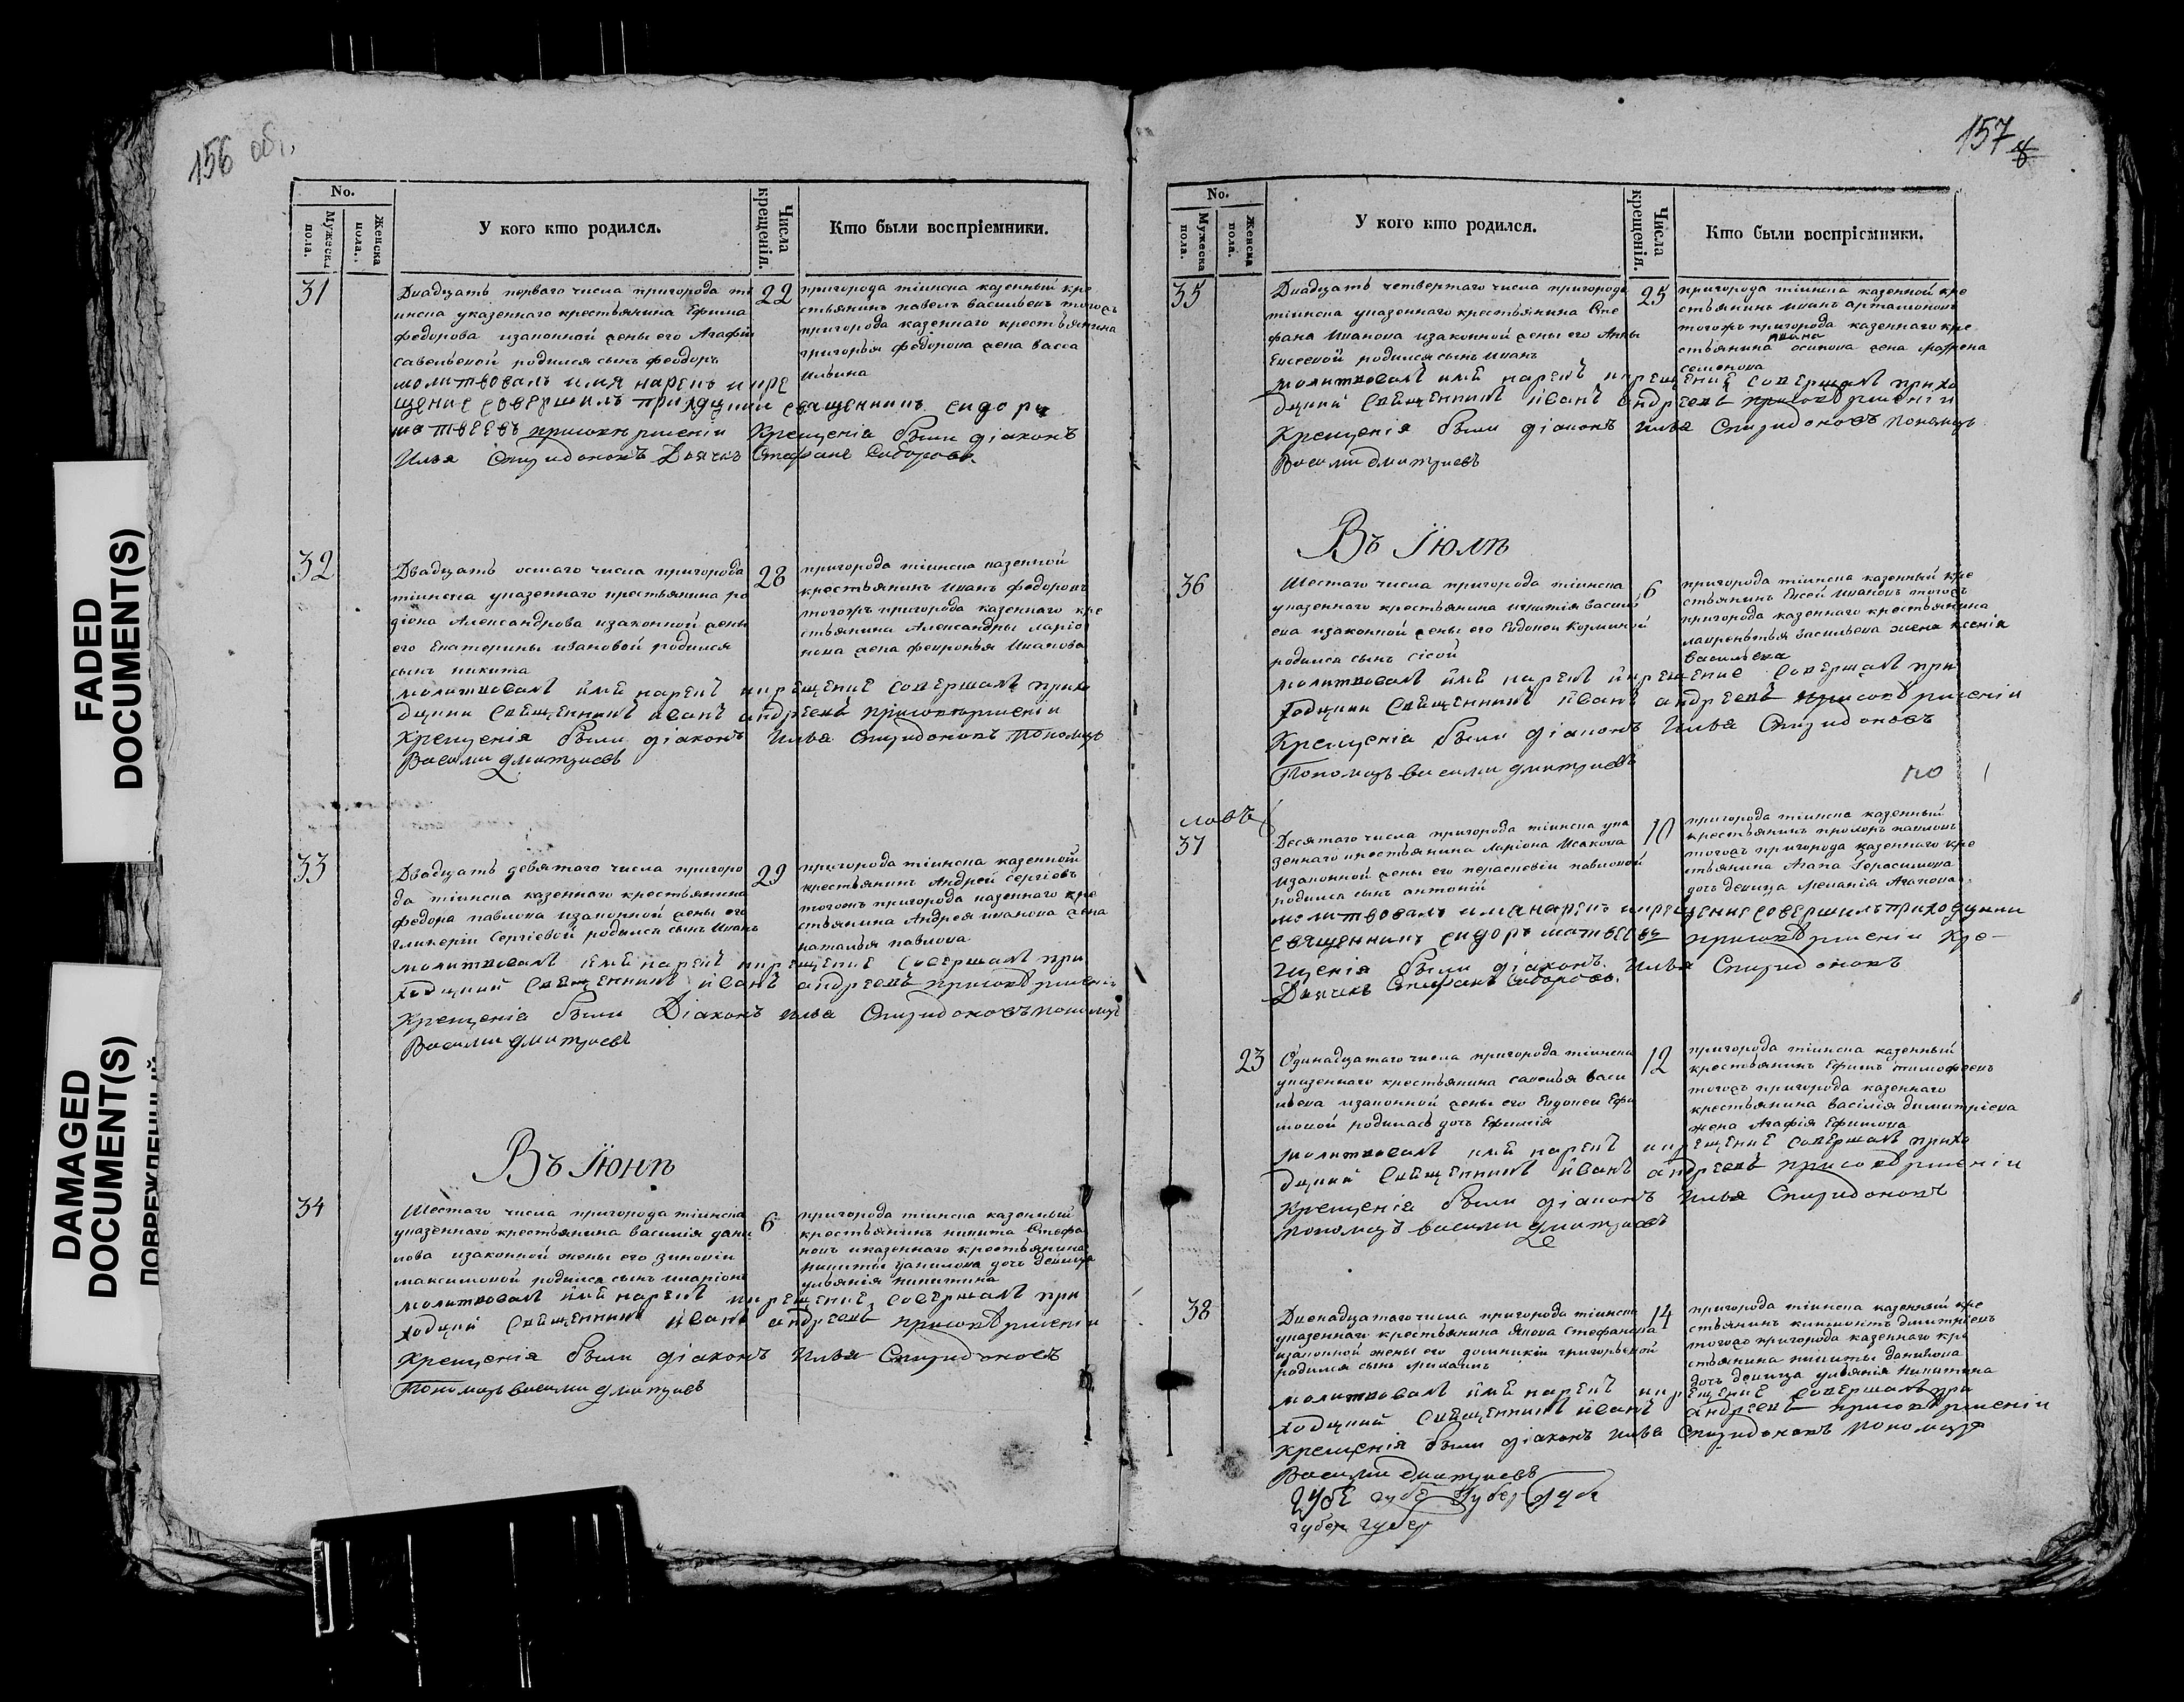 FADED
DOCUMENT(S)
DAMAGED
DOCUMENT(S)
ПОВРЕЖДЕННЫЙ
156 об.
No.
Мужеска пола.
Женска пола.
У кого кто родился.
Числа крещенія.
Кто были воспріемники.
31
Двадцать перваго числа пригорода ті
инска указеннаго крестьянина Ефима
федорова изаконной жены его Агафіи
савельевой родился сынъ феодоръ
молитвовалъ имя нарекъ икре
щение совершилъ приходции священникъ сидоръ
матвеевъ присовершении Крещеніа были діаконъ
Илья Спиридоновъ Дьячекъ Стефанъ Сидоровъ.
22
пригорода тіинска казенный кре
стьянинъ павелъ васильевъ тогожъ
пригорода казеннаго крестьянина
григорья федорова жена васса
Ильина
32
Двадцать осмаго числа пригорода
тіинска указеннаго крестьянина ро
діона Александрова изаконной жены
его Екатерины ивановой родился
сынъ никита
молитвовалъ имѧ нарекъ икрещение совершалъ прихо
дцкии священникъ иванъ андреевъ присовершеніи
Крещенія были діаконъ Илья Спиридоновъ Пономарь
Василии дмитриевъ
28
пригорода тіинска казенной
крестьянинъ Иванъ федоровъ
тогожъ пригорода казеннаго кре
стьянина Александры ларіо
нова жена февронья Иванова
33
Двадцать девятого числа пригоро
да тіинска казеннаго крестьянина
федора павлова изаконной жены его
гликеріи Сергіевой родился сынъ Иванъ
молитвовалъ имѧ нарекъ икрещение совершалъ при
ходцкий священникъ иванъ андреевъ присовершеніи
Крещеніа были Діаконъ илья Спиридоновъ пономарь
Василии дмитриевъ
29
пригорода тіинска казенной
крестьянинъ Андрей сергіевъ
тогожъ пригорода казеннаго кре
стьянина Андрея иванова жена
наталья павлова
Въ Іюнѣ
34
Шестаго числа пригорода тіинска
указеннаго крестьянина василія дани
лова изаконной жены его зиновіи
максимовой родился сынъ иларіонъ
молитвовалъ имѧ нарекъ икрещение совершалъ при
ходцкий священникъ иванъ андреевъ присовершении
Крещенія были діаконъ Илья Спиридоновъ
Пономарь василии дмитриевъ
6
пригорода тіинска казенный
крестьянинъ никита Стефа
новъ иказеннаго крестьянина
никиты данилова дочь девица
ульянія никитина
157
No.
Мужеска пола.
Женска пола.
У кого кто родился.
Числа крещенія.
Кто были воспріемники.
35
Двадцать четвертаго числа пригорода
тіинска указеннаго крестьянина Сте
фана Иванова изаконной жены его Анны
Евсеевой родился сынъ иванъ
молитвовалъ имѧ нарекъ икрещение совершалъ прихо
дцкий священникъ иванъ андреевъ присовершеніи
Крещенія были діаконъ Илья Спиридоновъ Пономарь
Василии дмитриевъ
25
пригорода тіинска казенной кре
стьянинъ иванъ артамоновъ
тогожъ пригорода казеннаго кре
ивана
стьянина осипова жена матрена
семенова
Въ Іюлѣ
36
Шестаго числа пригорода тіинска
указеннаго крестьянина игнатія василь
ева изаконной жены его Евдокеи Козминой
родился сынъ сісой
молитвовалъ имѧ нарекъ икрещение совершалъ при
ходцкии священникъ иванъ андреевъ присовершении
Крещеніа были діаконъ Илья Спиридоновъ
Пономарь василии дмитриевъ
6
пригорода тіинска казенный кре
стьянинъ Евсей ивановъ тогожъ
пригорода казеннаго крестьянина
лаврентья васильева жена ксенія
васильева
по
ловъ
37
Десятаго числа пригорода тіинска ука
зеннаго крестьянина ларіона Исакова
изаконной жены его парасковіи павловой
родился сынъ антоній
молитвовалъ имя нарекъ икрещение совершилъ приходцкии
священникъ сидоръ матвеевъ присовершеніи Кре-
щенія были діаконъ Илья Спиридоновъ
Дьячекъ Стефанъ Сидоровъ.
10
пригорода тіинска казенный
крестьянинъ прохоръ павловъ
тогожъ пригорода казеннаго кре
стьянина Агапа Герасимова
дочь девица меланія Агапова
23
Одинадцатаго числа пригорода тіинска
указеннаго крестьянина савелья васи
льева изаконной жены его Евдокеи Ефи
мовой родилась дочь Ефимія
молитвовалъ имѧ нарекъ икрещение совершалъ прихо
дцкий священникъ иванъ андреевъ присовершеніи
Крещеніа были діаконъ Илья Спиридоновъ
пономарь василии дмитриевъ
12
пригорода тіинска казенный
крестьянинъ Ефимъ тимофеевъ
тогожъ пригорода казеннаго
крестьянина василія димитріева
жена Агафія Ефимова
38
Двенадцатаго числа пригорода тіинска
указеннаго крестьянина якова стефанова
изаконной жены его домникіи григорьевой
родился сынъ
молитвовалъ имѧ нарекъ икрещение совершалъ при
ходцкий священникъ иванъ андреевъ присовершеніи
Крещенія были діаконъ Илья Спиридоновъ пономарь
Василии дмитриевъ
14
пригорода тіинска казенный кре
стьянинъ дмитріевъ
тогожъ пригорода казеннаго кре
стьянина никиты данилова
дочь девица ульянія никитина
губе губе губер губе
губер губер